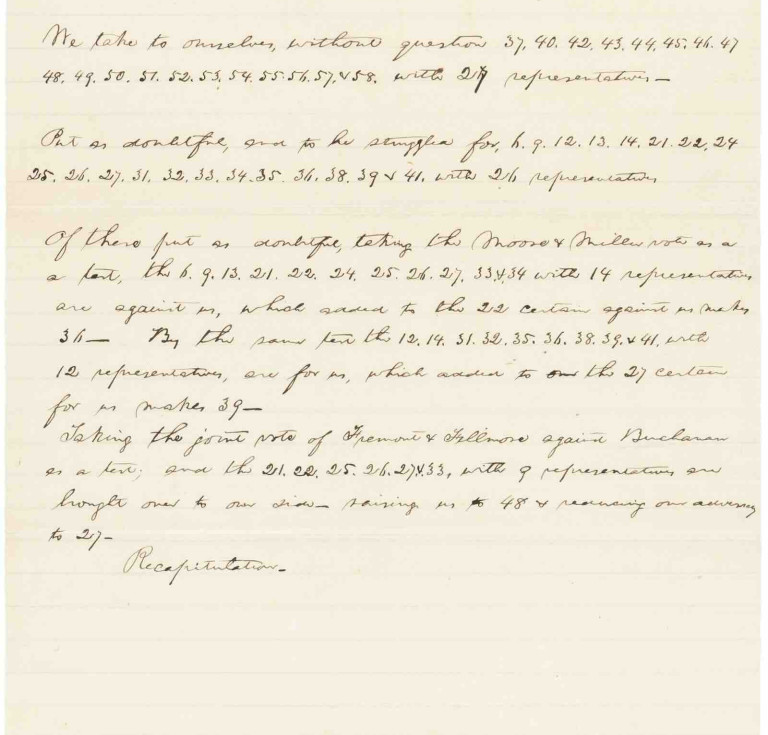 We take to ourselves, without question 37. 40. 42. 43. 44. 45. 46. 47
48. 49. 50. 51. 52. 53. 54. 55. 56. 57. & 58. with 27 representatives—
Put as doubtful, and to be struggled for, 6. 9. 12. 13. 14. 21. 22. 24
25. 26. 27. 31. 32. 33. 34. 35. 36. 38. 39 & 41. with 26 representatives
Of these put as doubtful, taking the Moore & Miller vote as a
a test, the 6. 9. 13. 21. 22. 24. 25. 26. 27. 33 & 34 with 14 representatives
are against us, which added to the 22 certain against us makes
36— By the same test the 12. 14. 31. 32. 35. 36. 38. 39. & 41. with
12 representatives, are for us, which added to the 27 certain
for us makes 39—
Taking the joint vote of Fremont & Fillmore against Buchanan
as a test; and the 21. 22. 25. 26. 27 & 33, with 9 representatives are
brought over to our side— raising us to 48 & reducing our adversary
to 27—
Recapitulation—